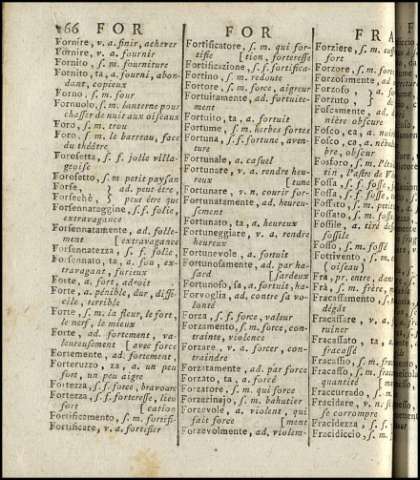 66 FOR
FOR
FRA
Fornire, v. a. finir, achever
Fornire, v. a. fournir
Fornito, s. m. fourniture
Fornito, ta, a. fourni, abon-
dant, copieux
Forno, s. m. four
Fornuolo, s. m. lanterne pour
chasser de nuit aux oiseaux
Foro, s. m. trou
Foro, s. m. le barreau, face
du théâtre
Forosetta, s. f. jolie villa-
geoise
Forosetto, s. m. petit paysan
Forse, } ad. peut-être,
Forsechè, } peut être que
Forsennataggine, s. f. folie,
extravagance
Forsennatamente, ad. folle-
ment [extravagance
Forsennatezza, s. f. folie,
Forsennato, ta, a. fou, ex-
travagant, furieux
Forte, a. fort, adroit
Forte, a. pénible, dur, diffi-
cile, terrible
Forte, s. m. la fleur, le fort,
le nerf, le mieux
Forte, ad. fortement, va-
leureusement [avec force
Fortemente, ad. fortement,
Forteruzzo, za, a. un peu
fort, un peu aigre
Fortezza, s. f. force, bravoure
Fortezza, s. f. forteresse, lieu
fort [cation
Fortificamento, s. m. fortifi-
Fortificare, v. a. fortifier
Fortificatore, s. m. qui for-
tifie [tion, forteresse
Fortificazione, s. f. fortifica-
Fortino, s. m. redoute
Fortore, s. m. force, aigreur
Fortuitamente, ad. fortuite-
ment
Fortuito, ta, a. fortuit
Fortume, s. m. herbes fortes
Fortuna, s. f. fortune, aven-
ture
Fortunale, a. casuel
Fortunare, v. a. rendre heu-
reux [tune
Fortunare, v. n. courir for-
Fortunatamente, ad. heureu-
sement
Fortunato, ta, a. heureux
Fortuneggiare, v. a. rendre
heureux
Fortunevole, a. fortuit
Fortunosamente, ad. par ha-
sard [sardeux
Fortunoso, sa, a. fortuit, ha-
Forvoglia, ad. contre sa vo-
lonté
Forza, s. f. force, valeur
Forzamento, s. m. force, con-
trainte, violence
Forzare, v. a. forcer, con-
traindre
Forzatamente, ad. par force
Forzato, ta, a. forcé
Forzatore, s. m. qui force
Forzerinajo, s. m. bahutier
Forzevole, a. violent, qui
fait force [ment
Forzevolmente, ad. violem-
Forziere, s. m.
fort
Forzore, s. m.
Forzosamente, ad.
Forzoso, }
Forzuto, }
Foscamente, ad.
nière obscure
Fosco, ca, a.
Fosco, ca, a.
bre, obscur
Fosforo, s. m.
tin, l'astre de
Fossa, s. f. fosse,
Fossa, s. f. fosse,
Fossato, s. m.
Fossato, s. m.
Fossile, a. tiré de
fossile
Fosso, s. m. fossé
Fottivento, s. m.
(oiseau)
Fra, pr. entre,
Frà, s. m. frère,
Fracassamento,
dégât
Fracassare, v. a.
ruiner
Fracassato, ta, a.
fracassé
Fracasso, s. m. fracas,
Fracasso, s. m.
quantité
Fraccurrado, s. m.
Fracidare, v. n.
se corrompre
Fracidezza, s. f.
Fracidiccio, s. m.